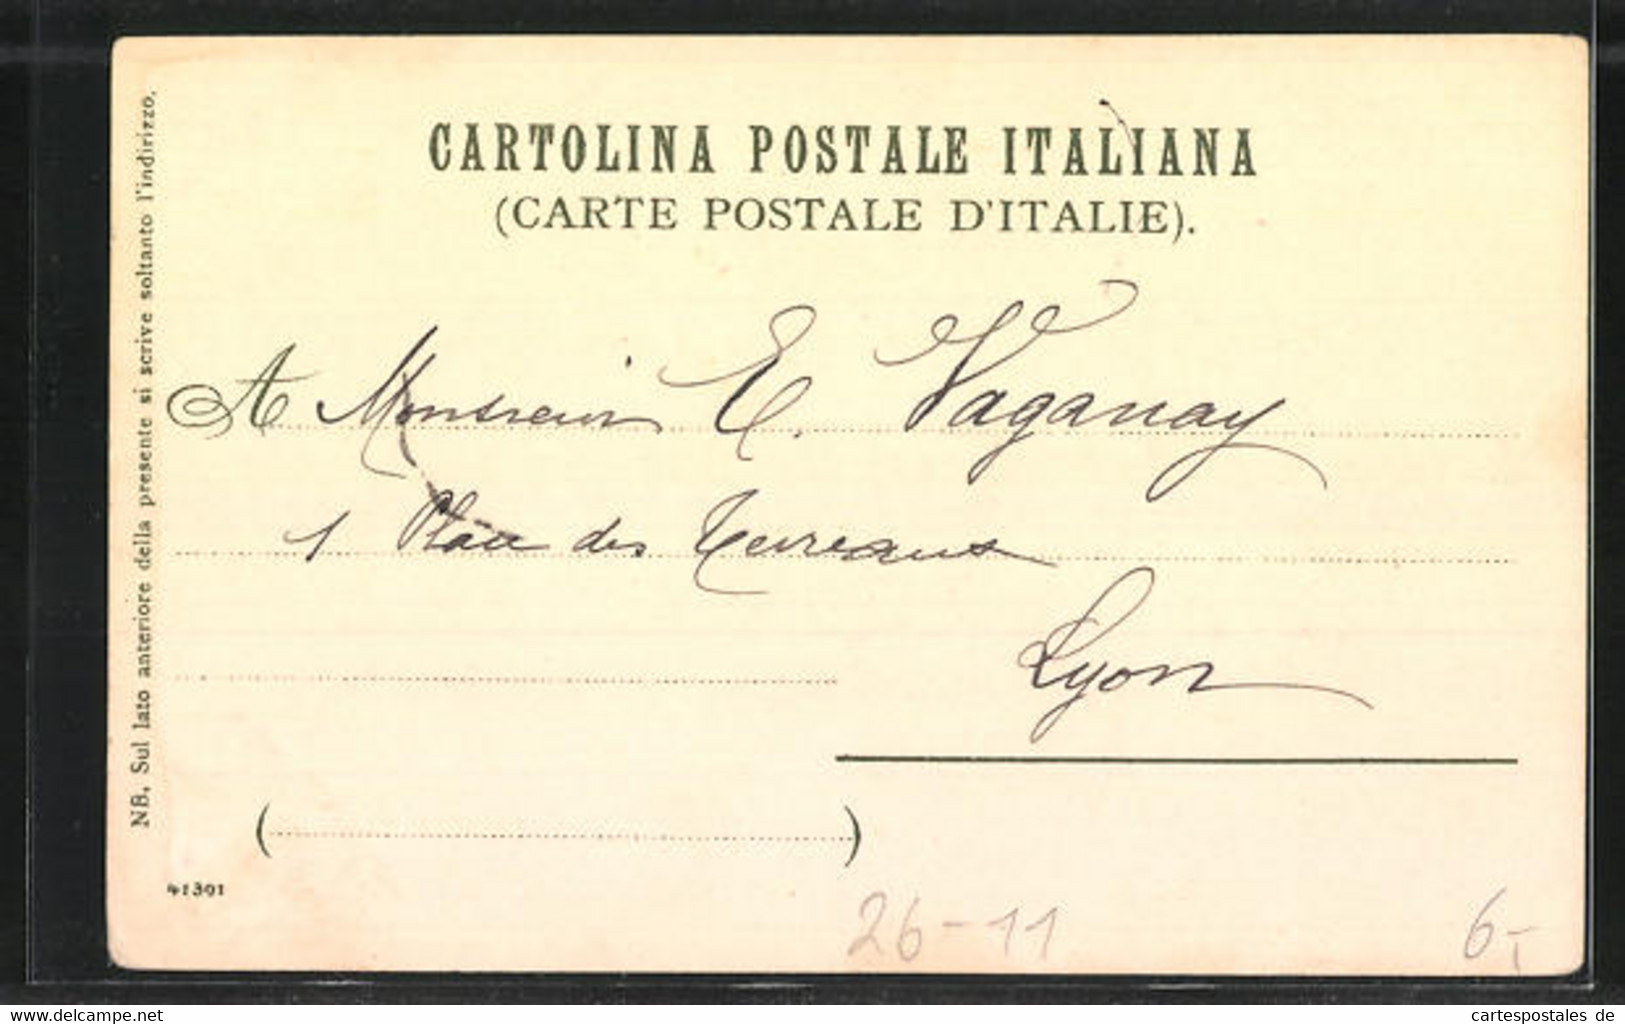 CARTOLINA POSTALE ITALIANA
(CARTE POSTALE D'ITALIE).
A Monsieur E. Vaganay
1 Place des Terreaux
Lyon
( )
NB. Sul lato anteriore della presente si scrive soltanto l'indirizzo.
41391
26-11
6,-
cartespostales de